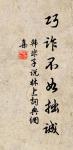 巧诈不如拙诚
韩非子说林上词典网
集